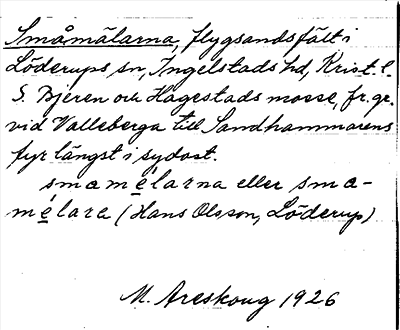 Småmälarna, flygsandsfält i
Löderups sn, Ingelstads hd, Krist. l.
S. Bjeren och Hagestads mosse, fr. gr.
vid Valleberga till Sandhammarens
fyr längst i sydost.
smamélarna eller sma-
mélara (Hans Olsson, Löderup)
M. Areskoug 1926